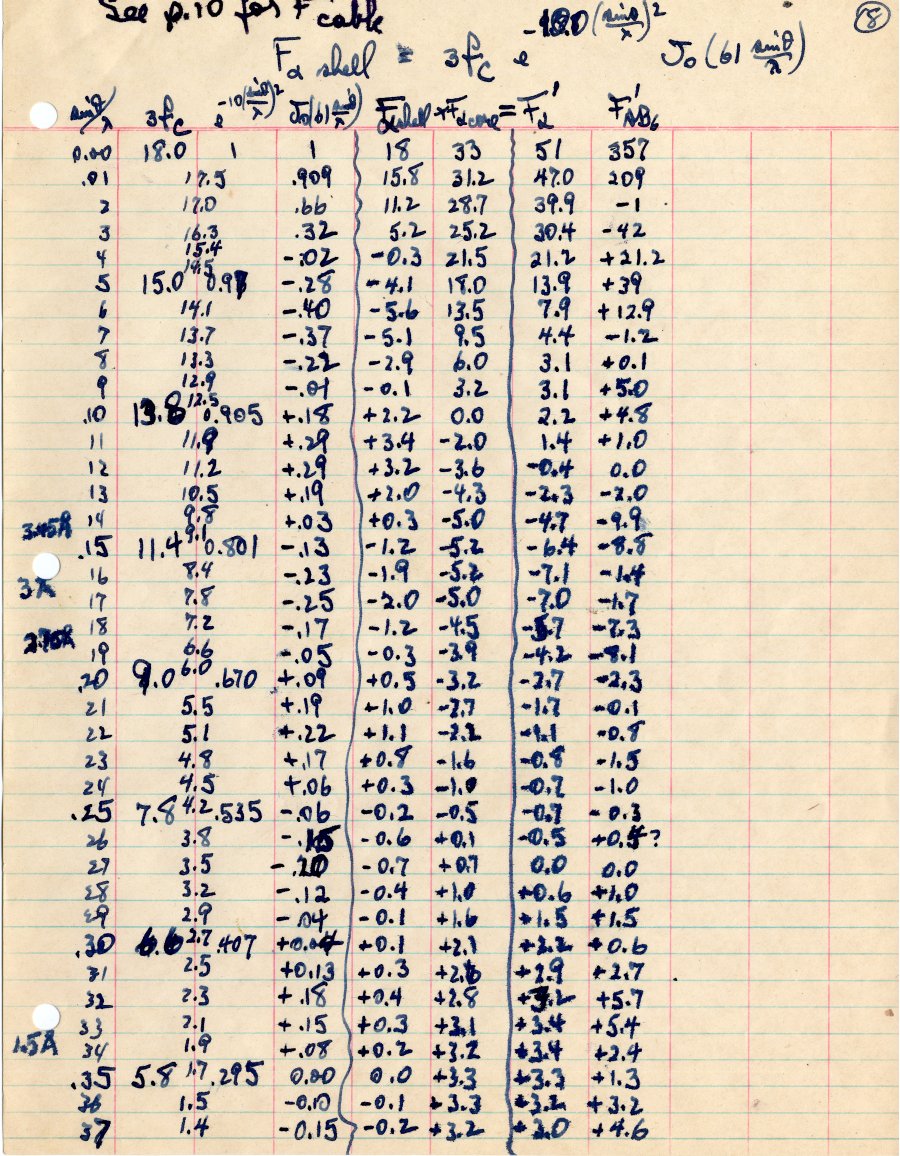 See p.10 for F cable
⑧
F α shell = 3fc e -10.0 (sinθ/λ)² J₀(61 sinθ/λ)
sinθ/λ 3fc e -10(sinθ/λ)² J₀(61 sinθ/λ) Fα shell + Fα core = Fα' F'AB6
0.00 18.0 1 1 18 33 51 357
.01 17.5 .909 15.8 31.2 47.0 209
2 17.0 .66 11.2 28.7 39.9 -1
3 16.3 .32 5.2 25.2 30.4 -42
4 15.4 -.02 -0.3 21.5 21.2 +21.2
5 15.0 14.5 0.97 -.28 -4.1 18.0 13.9 +39
6 14.1 -.40 -5.6 13.5 7.9 +12.9
7 13.7 -.37 -5.1 9.5 4.4 -1.2
8 13.3 -.22 -2.9 6.0 3.1 +0.1
9 12.9 -.01 -0.1 3.2 3.1 +5.0
.10 13.8 12.5 0.905 +.18 +2.2 0.0 2.2 +4.8
11 11.9 +.29 +3.4 -2.0 1.4 +1.0
12 11.2 +.29 +3.2 -3.6 -0.4 0.0
13 10.5 +.19 +2.0 -4.3 -2.3 -2.0
3.45Å 14 9.8 +.03 +0.3 -5.0 -4.7 -9.9
.15 11.4 9.1 0.801 -.13 -1.2 -5.2 -6.4 -8.8
3Å 16 8.4 -.23 -1.9 -5.2 -7.1 -1.4
17 7.8 -.25 -2.0 -5.0 -7.0 -1.7
2.75Å 18 7.2 -.17 -1.2 -4.5 -5.7 -7.3
19 6.6 -.05 -0.3 -3.9 -4.2 -8.1
.20 9.0 6.0 .670 +.09 +0.5 -3.2 -2.7 -2.3
21 5.5 +.19 +1.0 -2.7 -1.7 -0.1
22 5.1 +.22 +1.1 -2.2 -1.1 -0.8
23 4.8 +.17 +0.8 -1.6 -0.8 -1.5
24 4.5 +.06 +0.3 -1.0 -0.7 -1.0
.25 7.8 4.2 .535 -.06 -0.2 -0.5 -0.7 -0.3
26 3.8 -.15 -0.6 +0.1 -0.5 +0.4?
27 3.5 -.20 -0.7 +0.7 0.0 0.0
28 3.2 -.12 -0.4 +1.0 +0.6 +1.0
29 2.9 -.04 -0.1 +1.6 +1.5 +1.5
.30 6.6 2.7 .407 +0.04 +0.1 +2.1 +2.2 +0.6
31 2.5 +0.13 +0.3 +2.6 +2.9 +2.7
32 2.3 +.18 +0.4 +2.8 +3.2 +5.7
33 2.1 +.15 +0.3 +3.1 +3.4 +5.4
1.5Å 34 1.9 +.08 +0.2 +3.2 +3.4 +2.4
.35 5.8 1.7 .295 0.00 0.0 +3.3 +3.3 +1.3
36 1.5 -0.10 -0.1 +3.3 +3.2 +3.2
37 1.4 -0.15 -0.2 +3.2 +3.0 +4.6